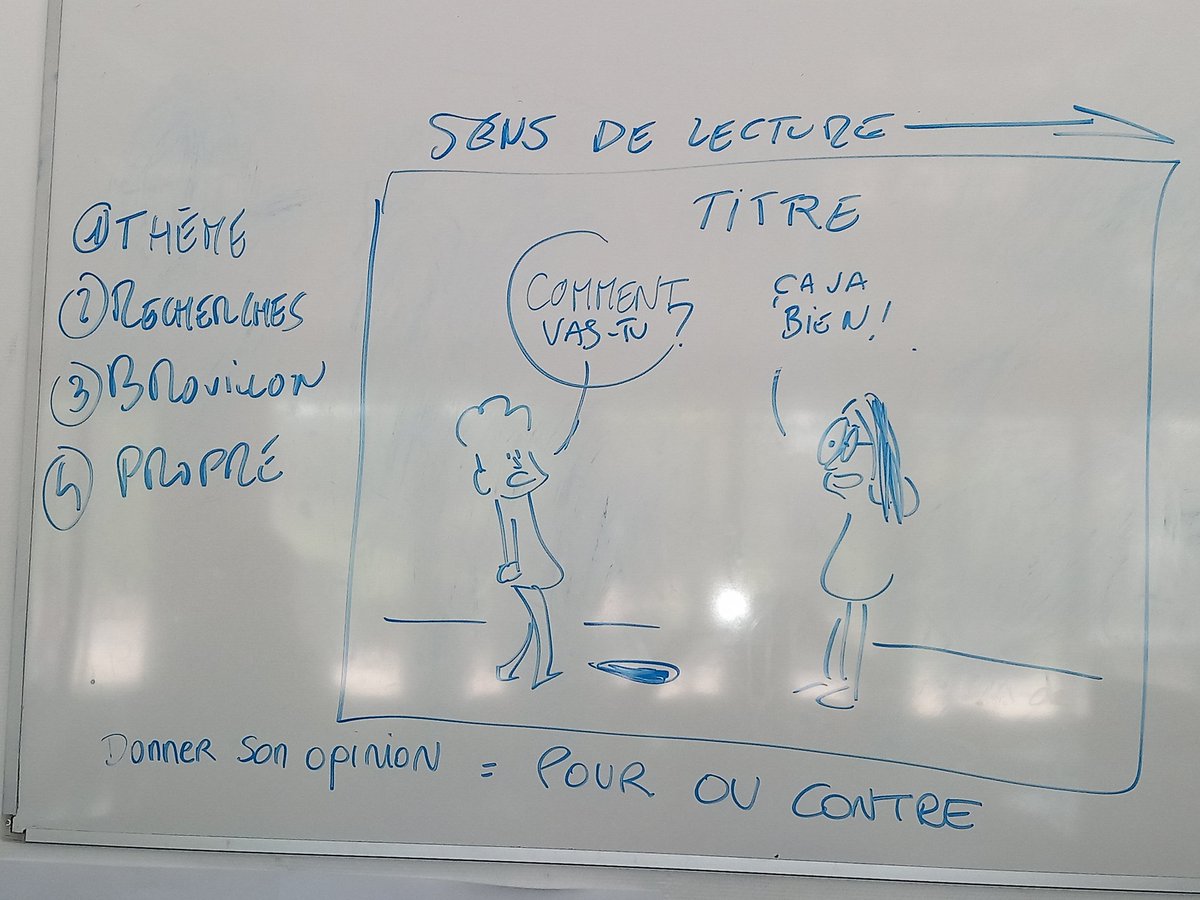 SENS DE LECTURE
TITRE
① THÈME
② RECHERCHES
③ BROUILLON
④ PROPRE
COMMENT
VAS-TU ?
ÇA VA
BIEN !
Donner son opinion = POUR OU CONTRE